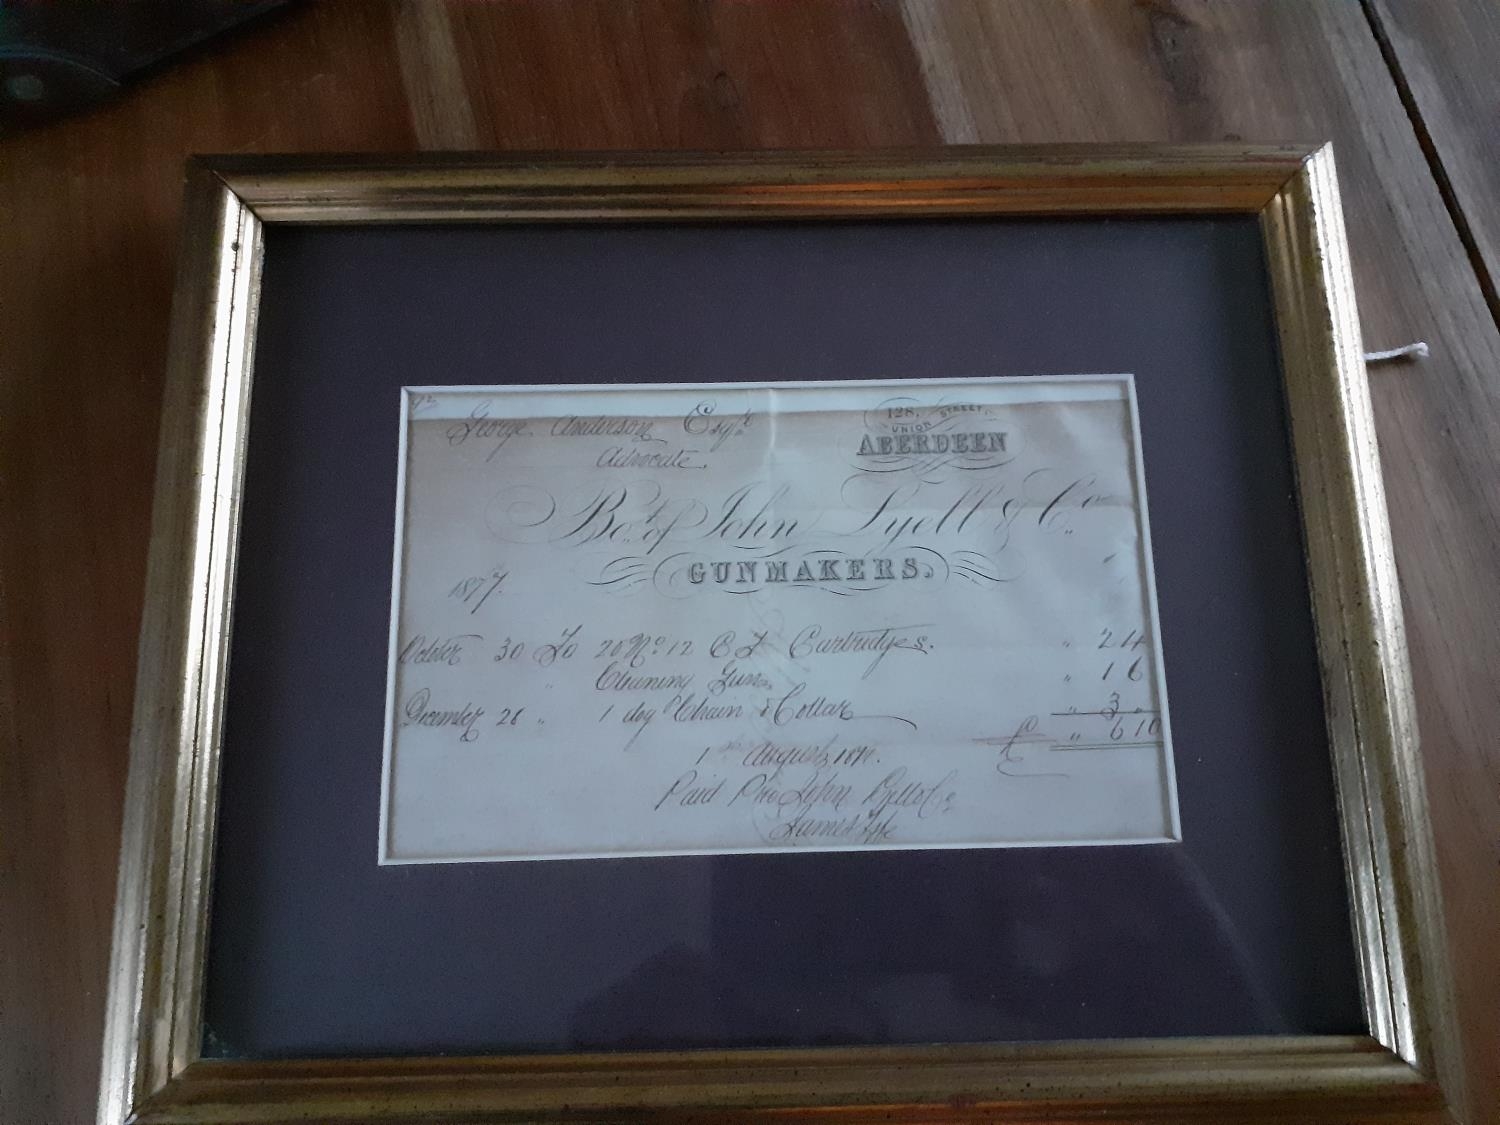 George Anderson Esqre
Advocate.
128, UNION STREET,
ABERDEEN
Bot. of John Lyell & Co.
GUNMAKERS.
1877.
October 30 To 20 No 12 C F Cartridges. " 2 4
" Cleaning Gun " 1 6
December 28 " 1 dog Chain & Collar " 3 "
£ " 6 10
1 August, 1878.
Paid Pro John Lyell & Co
James